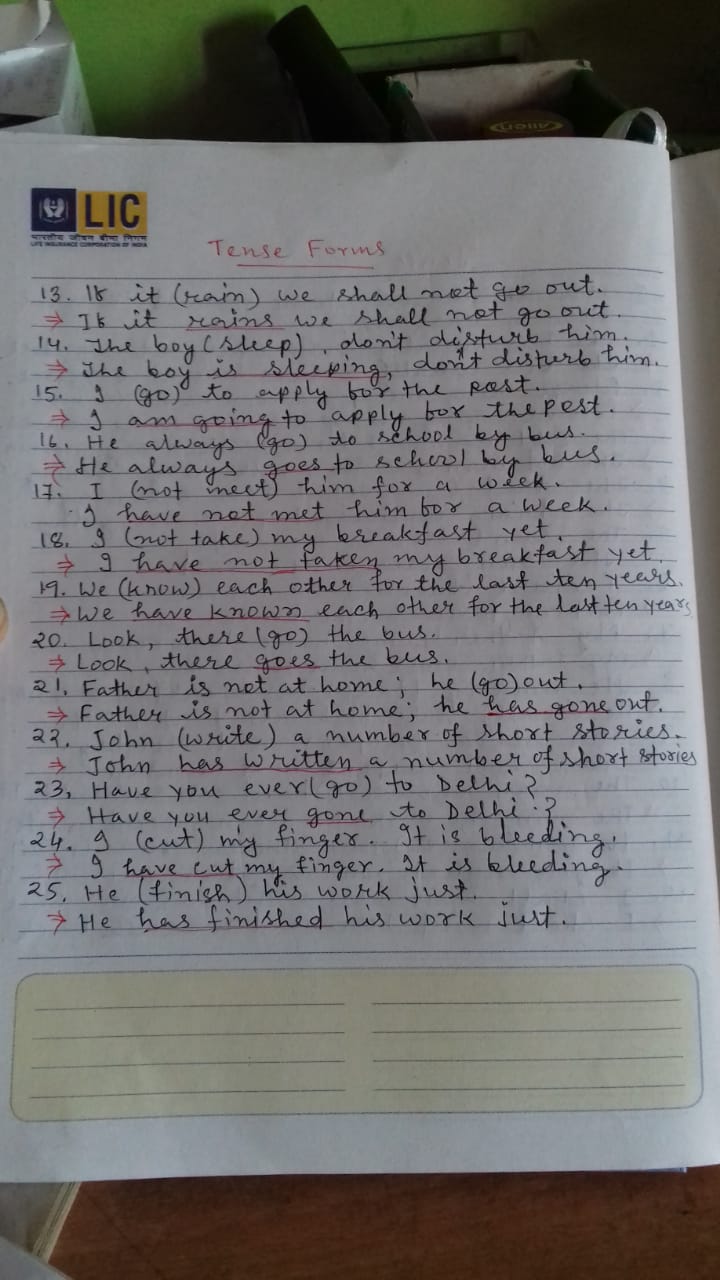 LIC
भारतीय जीवन बीमा निगम
LIFE INSURANCE CORPORATION OF INDIA
Allen
Tense Forms
13. If it (rain) we shall not go out.
⇒ If it rains we shall not go out.
14. The boy (sleep), don't disturb him.
⇒ The boy is sleeping, don't disturb him.
15. I (go) to apply for the post.
⇒ I am going to apply for the post.
16. He always (go) to school by bus.
⇒ He always goes to school by bus.
17. I (not meet) him for a week.
I have not met him for a week.
18. I (not take) my breakfast yet.
⇒ I have not taken my breakfast yet.
19. We (know) each other for the last ten years.
⇒ We have known each other for the last ten years
20. Look, there (go) the bus.
⇒ Look, there goes the bus.
21. Father is not at home; he (go) out.
⇒ Father is not at home; he has gone out.
22. John (write) a number of short stories.
⇒ John has written a number of short stories
23, Have you ever (go) to Delhi?
⇒ Have you ever gone to Delhi?
24. I (cut) my finger. It is bleeding.
⇒ I have cut my finger. It is bleeding.
25. He (finish) his work just.
⇒ He has finished his work just.